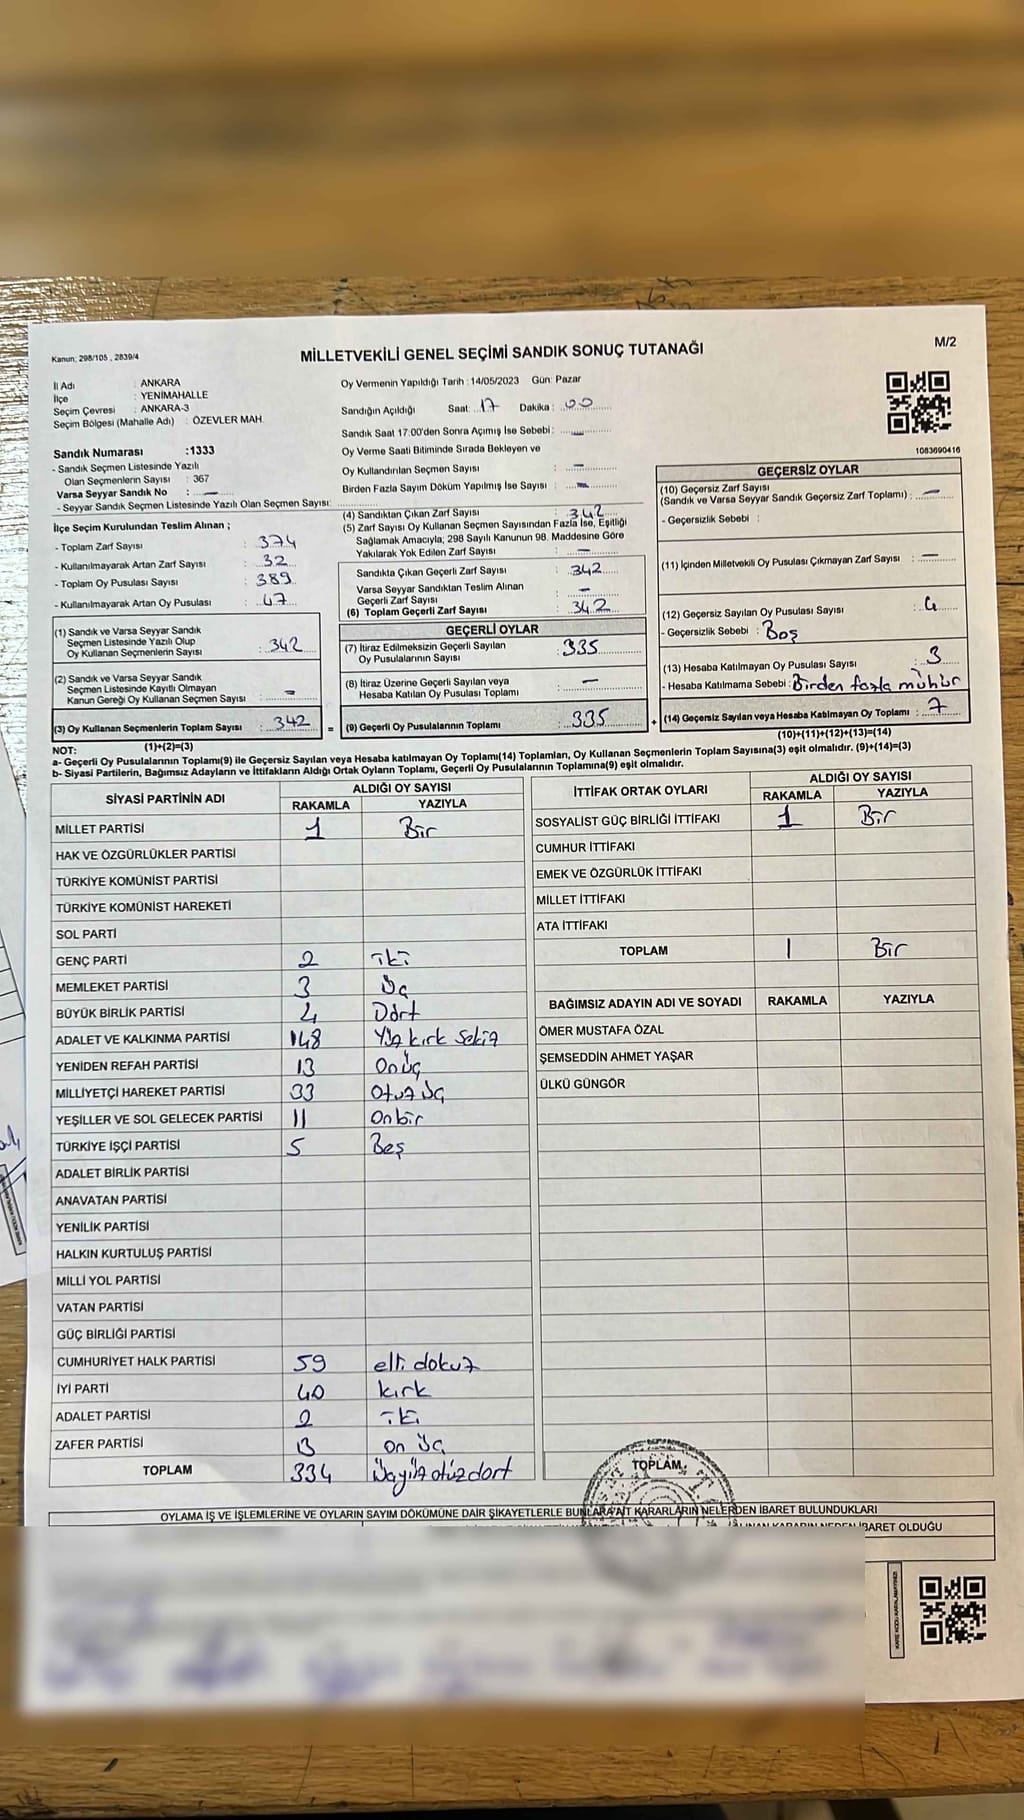 Kanun: 298/105 , 2839/4
MİLLETVEKİLİ GENEL SEÇİMİ SANDIK SONUÇ TUTANAĞI
M/2
İl Adı : ANKARA
İlçe : YENİMAHALLE
Seçim Çevresi : ANKARA-3
Seçim Bölgesi (Mahalle Adı) : ÖZEVLER MAH.
Sandık Numarası :1333
- Sandık Seçmen Listesinde Yazılı
Olan Seçmenlerin Sayısı : 367
Varsa Seyyar Sandık No : —
- Seyyar Sandık Seçmen Listesinde Yazılı Olan Seçmen Sayısı:
İlçe Seçim Kurulundan Teslim Alınan ;
- Toplam Zarf Sayısı : 374
- Kullanılmayarak Artan Zarf Sayısı : 32
- Toplam Oy Pusulası Sayısı : 389
- Kullanılmayarak Artan Oy Pusulası : 47
(1) Sandık ve Varsa Seyyar Sandık
Seçmen Listesinde Yazılı Olup
Oy Kullanan Seçmenlerin Sayısı : 342
(2) Sandık ve Varsa Seyyar Sandık
Seçmen Listesinde Kayıtlı Olmayan
Kanun Gereği Oy Kullanan Seçmen Sayısı : —
(3) Oy Kullanan Seçmenlerin Toplam Sayısı : 342
Oy Vermenin Yapıldığı Tarih : 14/05/2023 Gün: Pazar
Sandığın Açıldığı Saat: 17 Dakika : 00
Sandık Saat 17:00'den Sonra Açımış İse Sebebi : —
Oy Verme Saati Bitiminde Sırada Bekleyen ve
Oy Kullandırılan Seçmen Sayısı : —
Birden Fazla Sayım Döküm Yapılmış İse Sayısı : —
(4) Sandıktan Çıkan Zarf Sayısı : 342
(5) Zarf Sayısı Oy Kullanan Seçmen Sayısından Fazla İse, Eşitliği
Sağlamak Amacıyla; 298 Sayılı Kanunun 98. Maddesine Göre
Yakılarak Yok Edilen Zarf Sayısı : —
Sandıkta Çıkan Geçerli Zarf Sayısı : 342
Varsa Seyyar Sandıktan Teslim Alınan
Geçerli Zarf Sayısı : —
(6) Toplam Geçerli Zarf Sayısı : 342
GEÇERLİ OYLAR
(7) İtiraz Edilmeksizin Geçerli Sayılan
Oy Pusulalarının Sayısı : 335
(8) İtiraz Üzerine Geçerli Sayılan veya
Hesaba Katılan Oy Pusulası Toplamı : —
= (9) Geçerli Oy Pusulalarının Toplamı : 335 +
1083690416
GEÇERSİZ OYLAR
(10) Geçersiz Zarf Sayısı
(Sandık ve Varsa Seyyar Sandık Geçersiz Zarf Toplamı) : —
- Geçersizlik Sebebi :
(11) İçinden Milletvekili Oy Pusulası Çıkmayan Zarf Sayısı : —
(12) Geçersiz Sayılan Oy Pusulası Sayısı : 4
- Geçersizlik Sebebi : Boş
(13) Hesaba Katılmayan Oy Pusulası Sayısı : 3
- Hesaba Katılmama Sebebi : Birden fazla mühür
(14) Geçersiz Sayılan veya Hesaba Katılmayan Oy Toplamı : 7
NOT: (1)+(2)=(3)
(10)+(11)+(12)+(13)=(14)
a- Geçerli Oy Pusulalarının Toplamı(9) ile Geçersiz Sayılan veya Hesaba katılmayan Oy Toplamı(14) Toplamları, Oy Kullanan Seçmenlerin Toplam Sayısına(3) eşit olmalıdır. (9)+(14)=(3)
b- Siyasi Partilerin, Bağımsız Adayların ve İttifakların Aldığı Ortak Oyların Toplamı, Geçerli Oy Pusulalarının Toplamına(9) eşit olmalıdır.
SİYASİ PARTİNİN ADI
ALDIĞI OY SAYISI
RAKAMLA YAZIYLA
MİLLET PARTİSİ 1 Bir
HAK VE ÖZGÜRLÜKLER PARTİSİ
TÜRKİYE KOMÜNİST PARTİSİ
TÜRKİYE KOMÜNİST HAREKETİ
SOL PARTİ
GENÇ PARTİ 2 iki
MEMLEKET PARTİSİ 3 Üç
BÜYÜK BİRLİK PARTİSİ 4 Dört
ADALET VE KALKINMA PARTİSİ 148 Yüz kırk sekiz
YENİDEN REFAH PARTİSİ 13 Onüç
MİLLİYETÇİ HAREKET PARTİSİ 33 Otuz üç
YEŞİLLER VE SOL GELECEK PARTİSİ 11 Onbir
TÜRKİYE İŞÇİ PARTİSİ 5 Beş
ADALET BİRLİK PARTİSİ
ANAVATAN PARTİSİ
YENİLİK PARTİSİ
HALKIN KURTULUŞ PARTİSİ
MİLLİ YOL PARTİSİ
VATAN PARTİSİ
GÜÇ BİRLİĞİ PARTİSİ
CUMHURİYET HALK PARTİSİ 59 elli dokuz
İYİ PARTİ 40 kırk
ADALET PARTİSİ 2 iki
ZAFER PARTİSİ 13 on üç
TOPLAM 334 Üçyüz otuzdört
İTTİFAK ORTAK OYLARI
ALDIĞI OY SAYISI
RAKAMLA YAZIYLA
SOSYALİST GÜÇ BİRLİĞİ İTTİFAKI 1 Bir
CUMHUR İTTİFAKI
EMEK VE ÖZGÜRLÜK İTTİFAKI
MİLLET İTTİFAKI
ATA İTTİFAKI
TOPLAM 1 Bir
BAĞIMSIZ ADAYIN ADI VE SOYADI RAKAMLA YAZIYLA
ÖMER MUSTAFA ÖZAL
ŞEMSEDDİN AHMET YAŞAR
ÜLKÜ GÜNGÖR
TOPLAM
OYLAMA İŞ VE İŞLEMLERİNE VE OYLARIN SAYIM DÖKÜMÜNE DAİR ŞİKAYETLERLE BUNLARA AİT KARARLARIN NELERDEN İBARET BULUNDUKLARI
KARARIN NEDEN İBARET OLDUĞU